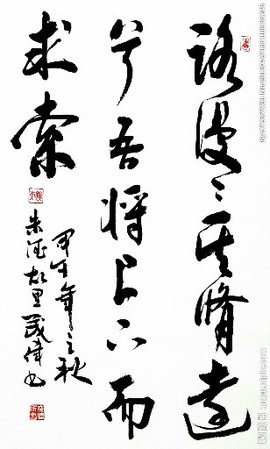 路漫〻其脩遠
兮吾將上下而
求索
甲午年之秋
朱德故里